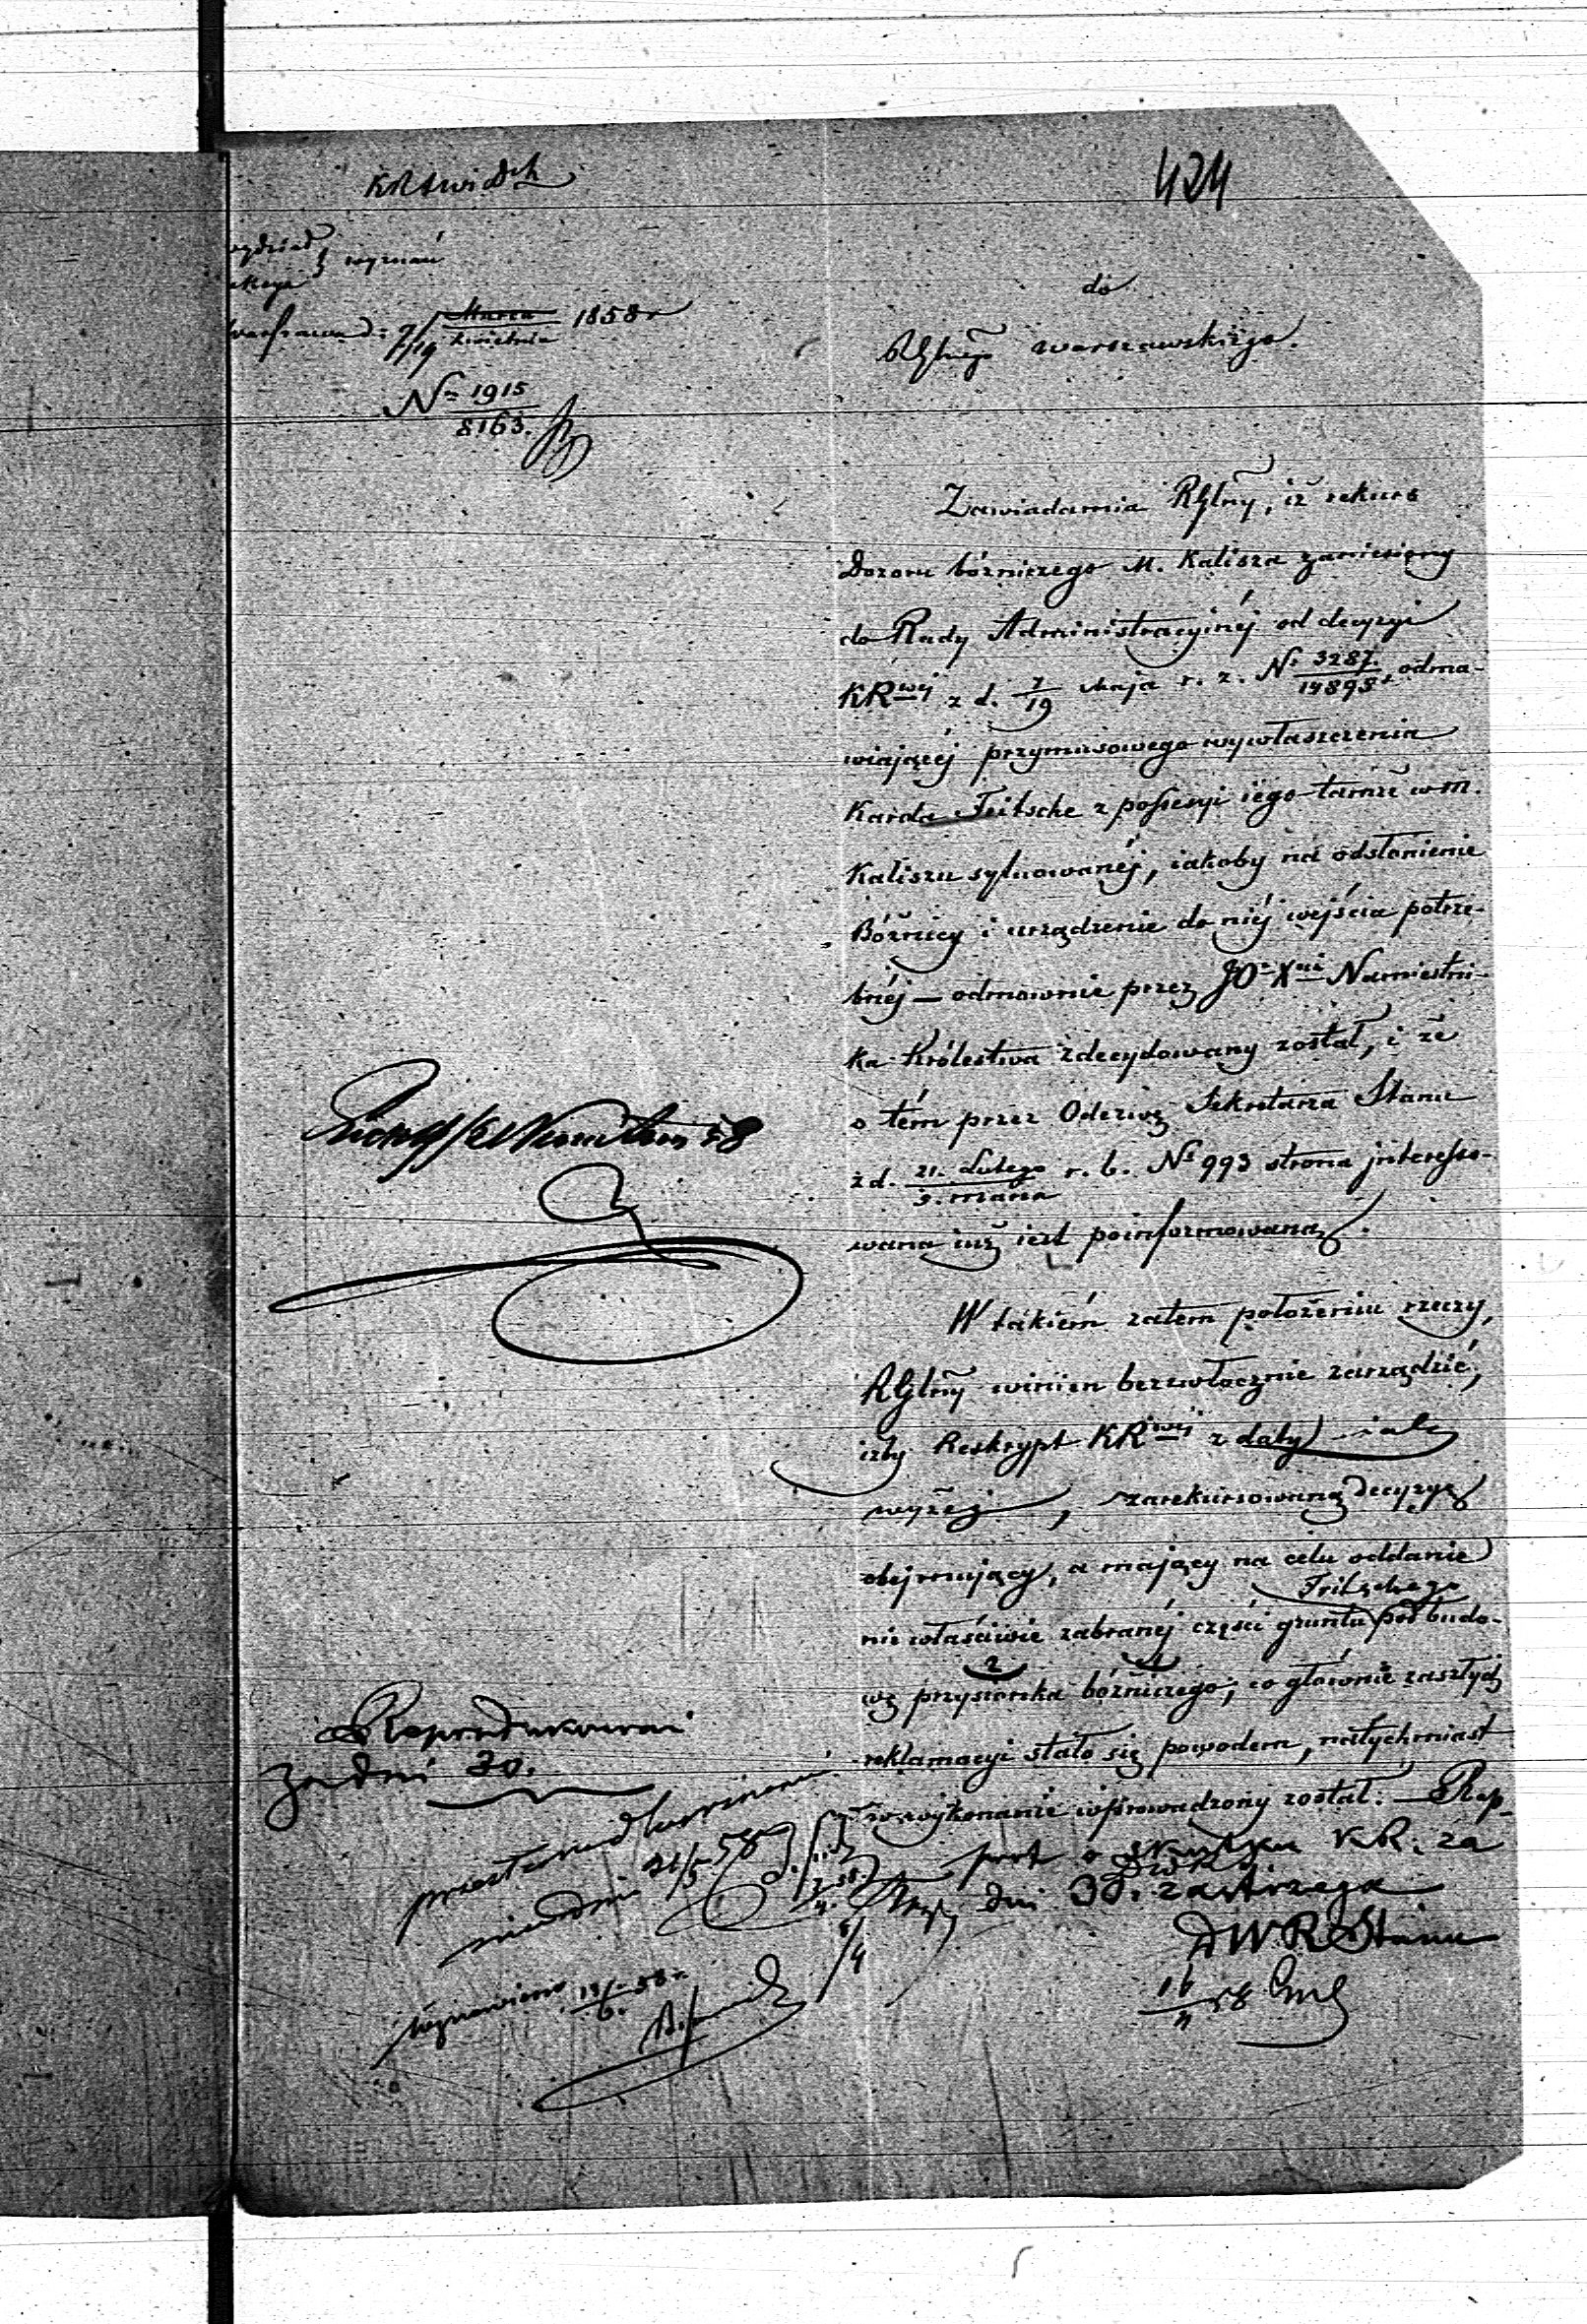 424
KRSWiDch
wydział
wyznań
sekcya
Warszawa d: 7/19 Marca Kwietnia 1858 r
Nº 1915
8163.
do
RGlnego Warszawskiego.
Zawiadamia RGlny, iż rekurs
Dozoru bóżniczego M. Kalisza zaniesiony
do Rady Administracyjnéj od decyzyi
KRwej z d. 7/19 Maja r. z. Nº 3287/14898, odma-
wiającéj przymusowego wywłaszczenia
Karola Fritsche z possesyi iego tamże w m.
Kaliszu sytuowanéj, iakoby na odsłonienie
Bóżnicy i urządzenie do niéj wejścia potrze-
bnéj — odmownie przez JO. Xcia Namiestni-
ka Królestwa zdecydowany został, i że
o tém przez Odezwę Sekretarza Stanu
z d. 21. Lutego/5. marca r. b. Nº 993 strona jnteresso-
wana iuż iest poinformowaną.
W takiém zatem położeniu rzeczy,
RGlny winien bezzwłocznie zarządzić,
iżby Reskrypt KRwej z daty iak
wyżej, zarekursowaną decyzyę
obejmujący, a mający na celu oddanie
Fritschego
niewłaściwie zabranéj części gruntu pod budo-
wę przysionka bóżniczego; co głównie zaszłych
reklamacyi stało się powodem, natychmiast
w wykonanie wprowadzony został. — Rap-
port o skutku KR. za
dni 30. zastrzega
DWR Stanu
16/4 58
Reprodukować
za dni 30.
21/5 58
Wznowiono 14/6. 58 r.